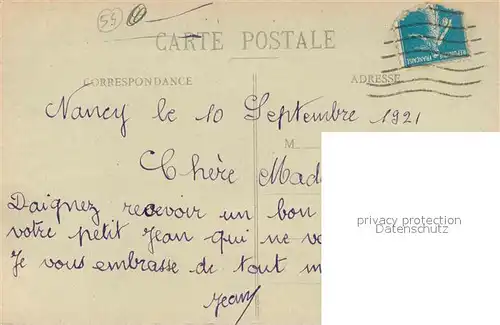 54
CARTE POSTALE
CORRESPONDANCE
ADRESSE
RÉPUBLIQUE FRANÇAISE
Nancy le 10 Septembre 1921
M
Chère Mad
Daignez recevoir un bon
votre petit Jean qui ne v
Je vous embrasse de tout m
Jean
privacy protection
Datenschutz